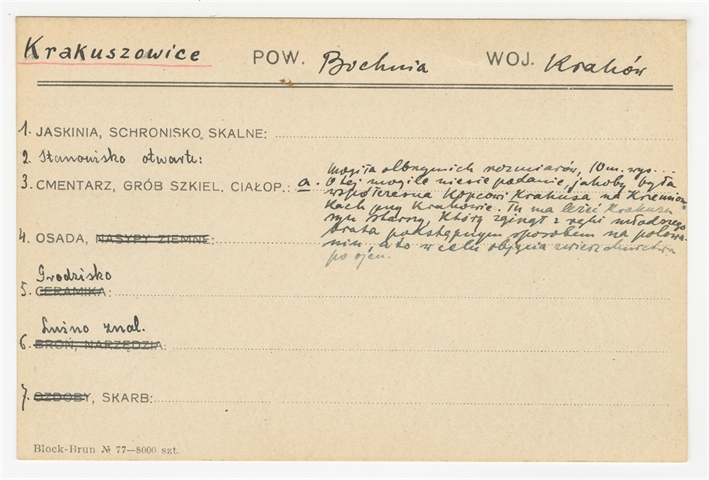 Krakuszowice POW. Bochnia WOJ. Kraków
1. JASKINIA, SCHRONISKO SKALNE:
2. Stanowisko otwarte:
3. CMENTARZ, GRÓB SZKIEL. CIAŁOP.: a. Mogiła olbrzymich rozmiarów, 10 m. wys...
O tej mogile niesie podanie, jakoby była
współczesna Kopcowi Krakusa na Krzemion
kach przy Krakowie. Tu ma leżeć Krakusa
syn starszy, który zginął z ręki młodszego
4. OSADA, NASYPY ZIEMNE:
brata podstępnym sposobem na polowa-
niu, a to w celu objęcia zwierzchnictwa
po ojcu.
Grodzisko
5. CERAMIKA:
Luźno znal.
6. BROŃ, NARZĘDZIA:
7. OZDOBY, SKARB:
Block-Brun № 77—8000 szt.